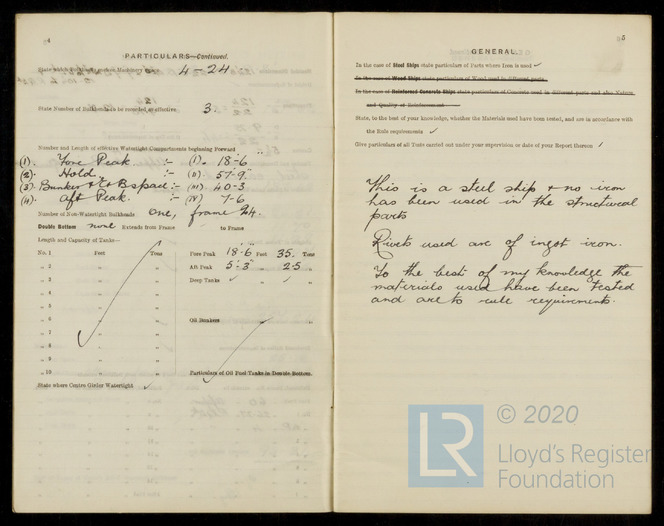 4
PARTICULARS—Continued.
4-24
State Number of Bulkheads to be recorded as effective 3.
Number and Length of effective Watertight Compartments beginning Forward
(1). Fore Peak :- (I). 18-6"
(2). Hold. :- (II) 57-9"
(3). Bunker & :- (III) 40-3
(4). Aft Peak. :- (IV) 7-6
Number of Non-Watertight Bulkheads One, frame 24.
Double Bottom none Extends from Frame to Frame
Length and Capacity of Tanks—
No. 1 Feet Tons Fore Peak 18'-6" Feet 35. Tons
„ 2 „ „ Aft Peak 5'-3" „ 2.5 „
„ 3 „ „ Deep Tanks ✓ „ ✓ „
„ 4 „ „
„ 5 „ „
„ 6 „ „ Oil Bunkers „
„ 7 „ „
„ 8 „ „
„ 9 „ „
„ 10 „ „ Particulars of Oil Fuel Tanks in Double Bottom.
State where Centre Girder Watertight ✓
5
GENERAL.
In the case of Steel Ships state particulars of Parts where Iron is used ✓
In the case of Wood Ships state particulars of Wood used in different parts
In the case of Reinforced Concrete Ships state particulars of Concrete used in different parts and also Nature
and Quality of Reinforcement
State, to the best of your knowledge, whether the Materials used have been tested, and are in accordance with
the Rule requirements ✓
Give particulars of all Tests carried out under your supervision or date of your Report thereon ✓
This is a steel ship & no iron
has been used in the structural
parts
Rivets used are of ingot iron.
To the best of my knowledge the
materials used have been tested
and are to rule requirements.
LR © 2020
Lloyd's Register
Foundation